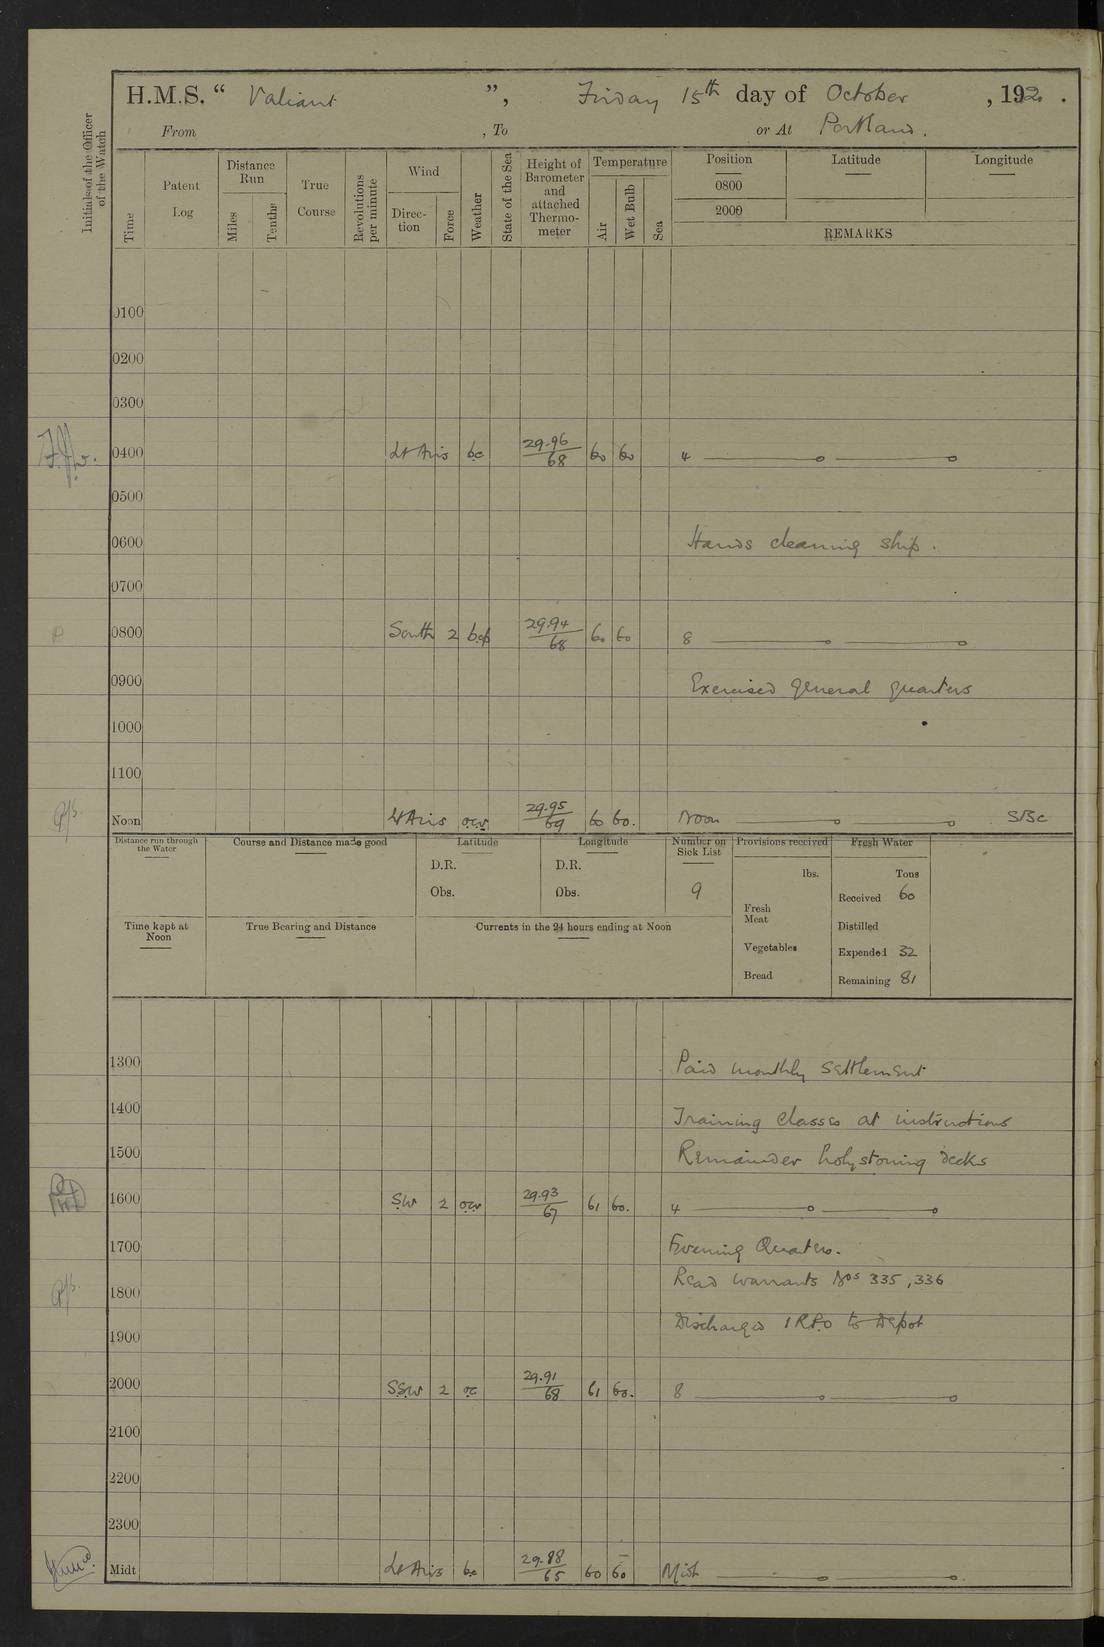 H.M.S. “ Valiant ”, Friday 15th day of October , 1920 .
From , To or At Portland .
Initials of the Officer of the Watch
Time
Patent Log
Distance Run
Miles
Tenths
True Course
Revolutions per minute
Wind
Direc- tion
Force
Weather
State of the Sea
Height of Barometer and attached Thermo- meter
Temperature
Air
Wet Bulb
Sea
Position Latitude Longitude
0800
2000
REMARKS
0100
0200
0300
0400 Lt Airs bc 29.96/68 60 60 4
0500
0600 Hands cleaning ship .
0700
0800 South 2 bcp 29.94/68 60 60 8
0900 Exercised general quarters
1000
1100
Noon Lt Airs 29.95/69 60 60. Noon SBC
Distance run through the Water
Course and Distance made good
Latitude
D.R.
Obs.
Longitude
D.R.
Obs.
Number on Sick List
9
Provisions received
lbs.
Fresh Meat
Vegetables
Bread
Fresh Water
Tons
Received 60
Distilled
Expended 32
Remaining 81
Time kept at Noon
True Bearing and Distance
Currents in the 24 hours ending at Noon
1300 Paid monthly settlement
1400 Training classes at instructions
1500 Remainder holystoning decks
1600 SW 2 29.93/67 61 60. 4
1700 Evening Quarters.
Read warrants Nos 335 , 336
1800
Discharged 1 RPO to Depot
1900
2000 SSW 2 oc 29.91/68 61 60. 8
2100
2200
2300
Midt Lt Airs bc 29.88/65 60 60 Midt